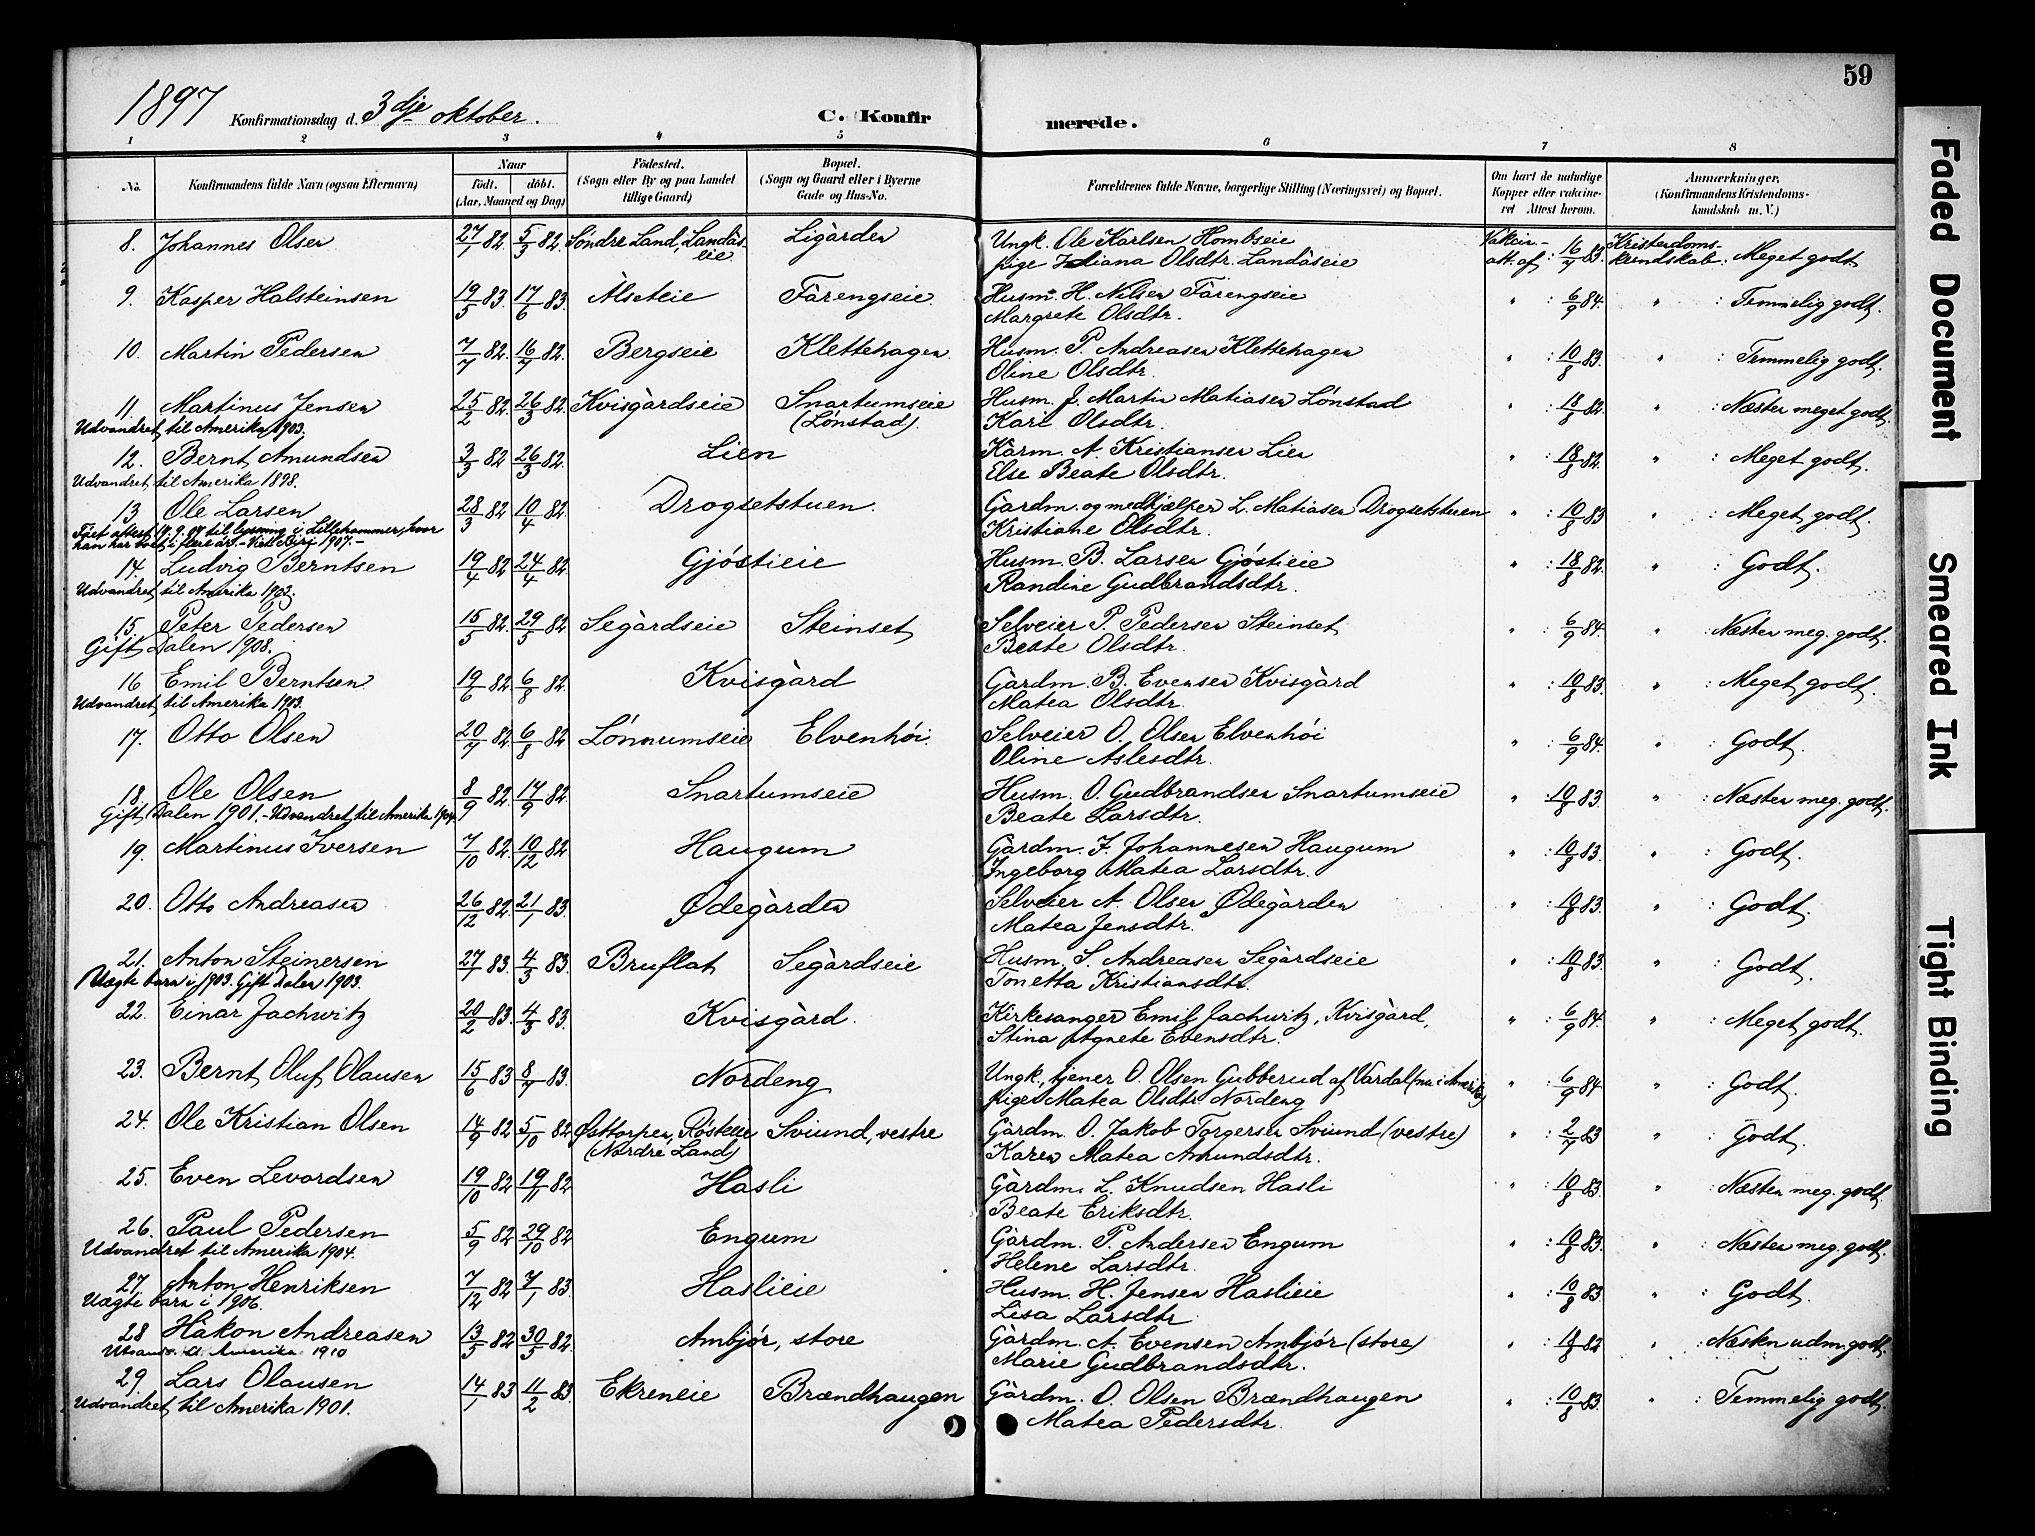 59
1897 Konfirmationsdag d. 3dje oktober. C. Konfir merede.
1 2 3 4 5 6 7 8
No. Konfirmandens fulde Navn (ogsaa Efternavn) Naar født. døbt. (Aar, Maaned og Dag) Fødested. (Sogn eller By og paa Landet tillige Gaard) Bopæl. (Sogn og Gaard eller i Byerne Gade og Hus-No. Forældrenes fulde Navne, borgerlige Stilling (Næringsvei) og Bopæl. Om havt de naturlige Kopper eller vakcineret Attest herom. Anmærkninger, (Konfirmandens Kristendomskundskab m. V.)
8. Johannes Olsen 27/1 82. 5/3 82. Søndre Land, Landåseie. Ligården Ungk. Ole Karlsen Hombseie Vakcin.- Kristendoms-
pige Juliana Olsdtr. Landåseie att. af : 16/7 83. kundskab : Meget godt.
9. Kasper Halsteinsen 19/5 83. 17/6 83. Alseteie Fårengseie. Husm. H. Nilsen Fårengseie " : 6/9 84. " : Temmelig godt.
Margrete Olsdtr.
10. Martin Pedersen 7/7 82. 16/7 82. Bergseie Klettehagen Husm. P. Andreasen Klettehagen " : 10/8 83. " : Temmelig godt.
Oline Olsdtr.
11. Martinus Jensen 25/2 82. 26/3 82. Kvisgårdseie Snartumseie Husm. J. Martin Matiasen Lønstad " : 18/8 82. " : Næsten meget godt.
Udvandret til Amerika 1903. (Lønstad). Kari Olsdtr.
12. Bernt Amundsen 3/3 82 26/3 82. Lien Kårm. A. Kristiansen Lien " : 18/8 82. " : Meget godt.
Udvandret til Amerika 1898. Else Beate Olsdtr.
13. Ole Larsen 28/3 82. 10/4 82. Drogsetstuen. Gårdm. og medhjælper L. Matiasen Drogsetstuen " : 10/8 83 " : Meget godt.
Fået attest 14.9.07 til lysning i Lillehammer, hvor Kristiane Olsdtr.
han har boet i flere år.
14. Ludvig Berntsen 19/4 82 24/4 82. Gjøstieie Husm. B. Larsen Gjøstieie " : 18/8 82. " : Godt.
Udvandret til Amerika 1903. Randine Gudbrandsdtr.
15. Peter Pedersen 15/5 82. 29/5 82 Segårdseie Steinset Selveier P. Pedersen Steinset " : 6/9 84. " : Næsten meg. godt.
Gift Dalen 1908. Beate Olsdtr.
16 Emil Berntsen 19/6 82. 6/8 82. Kvisgård Gårdm. B. Evensen Kvisgård " : 10/8 83. " : Meget godt.
Udvandret til Amerika 1903. Matea Olsdtr.
17. Otto Olsen 20/7 82. 6/8 82 Lønnumseie Elvenhøi. Selveier O. Olsen Elvenhøi " : 6/9 84. " : Godt.
Oline Aslesdtr.
18. Ole Olsen 8/9 82. 17/9 82. Snartumseie Husm. O. Gudbrandsen Snartumseie " : 10/8 83. " : Næsten meg. godt.
Gift Dalen 1901. - Udvandret til Amerika 1904. Beate Larsdtr.
19. Martinus Iversen 7/10 82. 10/12 82 Haugum Gårdm. I. Johannesen Haugum " : 10/8 83. " : Godt.
Ingeborg Matea Larsdtr.
20. Otto Andreasen 26/12 82. 21/1 83. Ødegården Selveier A. Olsen Ødegården " : 10/8 83. " : Godt.
Matea Jensdtr.
21. Anton Steinersen 27/1 83. 4/3 83. Bruflat Segårdseie Husm. S. Andreasen Segårdseie " : 10/8 83. " : Godt.
Uægte barn i 1903. Gift Dalen 1903. Tonetta Kristiansdtr.
22. Einar Jachwitz 20/2 83. 4/3 83. Kvisgård. Kirkesanger Emil Jachwitz, Kvisgård, " : 6/9 84. " : Meget godt.
Stina Agnete Evensdtr.
23. Bernt Oluf Olausen 15/6 83 8/7 83. Nordeng Ungk., tjener O. Olsen Gubberud af Vardal (nu i Amerika) " : 6/9 84 " : Godt.
pige Matea Olsdtr. Nordeng
24. Ole Kristian Olsen 14/9 82. 5/10 82 Østtorpen, Røsteeie Sviund, vestre Gårdm. O. Jakob Torgersen Sviund (vestre) " : 2/7 83 " : Godt.
(Nordre Land) Karen Matea Amundsdtr.
25. Even Levordsen 19/10 82 19/11 82 Hasli Gårdm. L. Knudsen Hasli " : 10/8 83. " : Næsten meg. godt.
Beate Eriksdtr.
26. Paul Pedersen 5/9 82 29/10 82 Engum Gårdm. P. Andersen Engum " : 10/8 83. " : Næsten meg. godt.
Udvandret til Amerika 1904. Helene Larsdtr.
27. Anton Henriksen 7/12 82 7/1 83 Haslieie Husm. H. Jensen Haslieie " : 10/8 83. " : Godt.
Uægte barn i 1906. Lisa Larsdtr.
28 Håkon Andreasen 13/5 82 30/5 82. Ambjør, store Gårdm. A. Evensen Ambjør (store) " : 18/8 82 " : Næsten udm. godt.
Amerika 1910 Marie Gudbrandsdtr.
29. Lars Olausen 14/1 83 11/2 83. Ekreneie Brændhaugen Gårdm. O. Olsen Brændhaugen " : 10/8 83. " : Temmelig godt.
Udvandret til Amerika 1901. Matea Pedersdtr.
Faded Document
Smeared Ink
Tight Binding